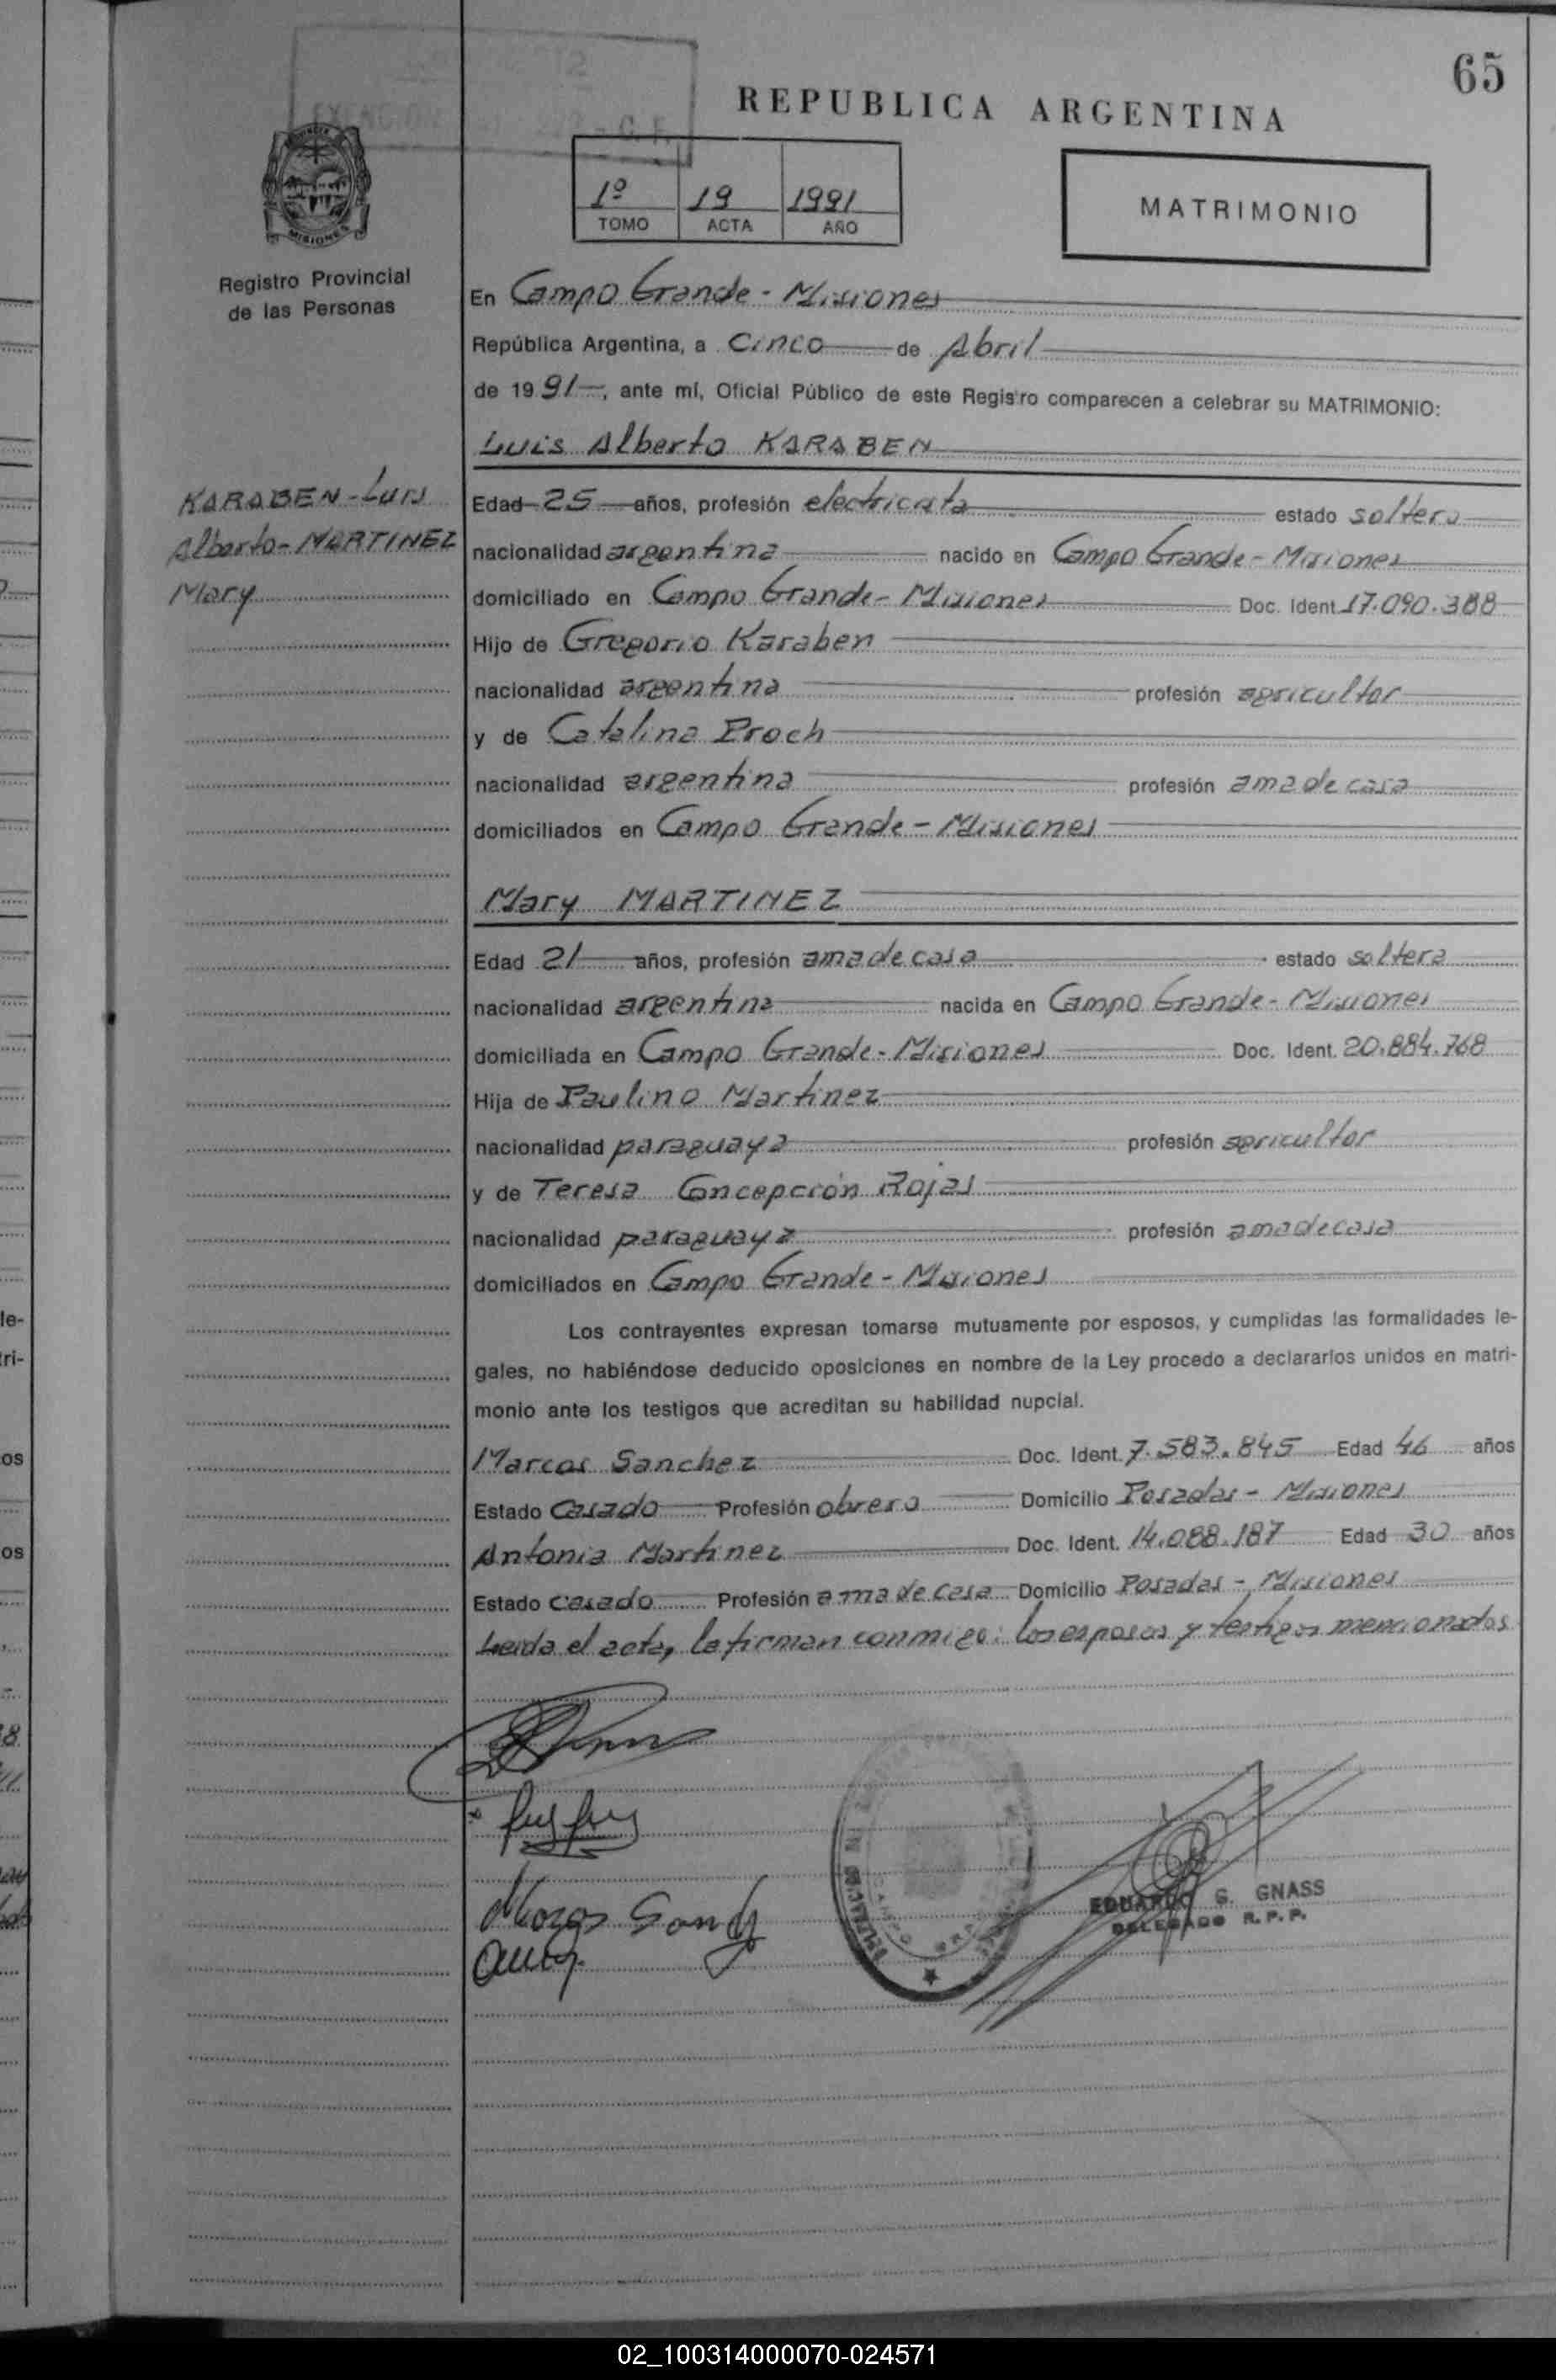 65
REPUBLICA ARGENTINA
1º 19 1991
TOMO ACTA AÑO
MATRIMONIO
MISIONES
Registro Provincial
de las Personas
En Campo Grande - Misiones
República Argentina, a Cinco de Abril
de 1991, ante mí, Oficial Público de este Registro comparecen a celebrar su MATRIMONIO:
Luis Alberto KARABEN
KARABEN - Luis
Alberto - MARTINEZ
Mary
Edad 25 años, profesión electricista estado soltero
nacionalidad argentina nacido en Campo Grande - Misiones
domiciliado en Campo Grande - Misiones Doc. Ident. 17.090.388
Hijo de Gregorio Karaben
nacionalidad argentina profesión agricultor
y de Catalina Proch
nacionalidad argentina profesión ama de casa
domiciliados en Campo Grande - Misiones
Mary MARTINEZ
Edad 21 años, profesión ama de casa estado soltera
nacionalidad argentina nacida en Campo Grande - Misiones
domiciliada en Campo Grande - Misiones Doc. Ident. 20.884.768
Hija de Paulino Martinez
nacionalidad paraguaya profesión agricultor
y de Teresa Concepción Rojas
nacionalidad paraguaya profesión ama de casa
domiciliados en Campo Grande - Misiones
Los contrayentes expresan tomarse mutuamente por esposos, y cumplidas las formalidades le-
gales, no habiéndose deducido oposiciones en nombre de la Ley procedo a declararlos unidos en matri-
monio ante los testigos que acreditan su habilidad nupcial.
Marcos Sanchez Doc. Ident. 7.583.845 Edad 46 años
Estado Casado Profesión obrero Domicilio Posadas - Misiones
Antonia Martinez Doc. Ident. 14.088.187 Edad 30 años
Estado casado Profesión ama de casa Domicilio Posadas - Misiones
Leida el acta, la firman conmigo: los esposos y testigos mencionados
EDUARDO G. GNASS
DELEGADO R.P.P.
02_100314000070-024571